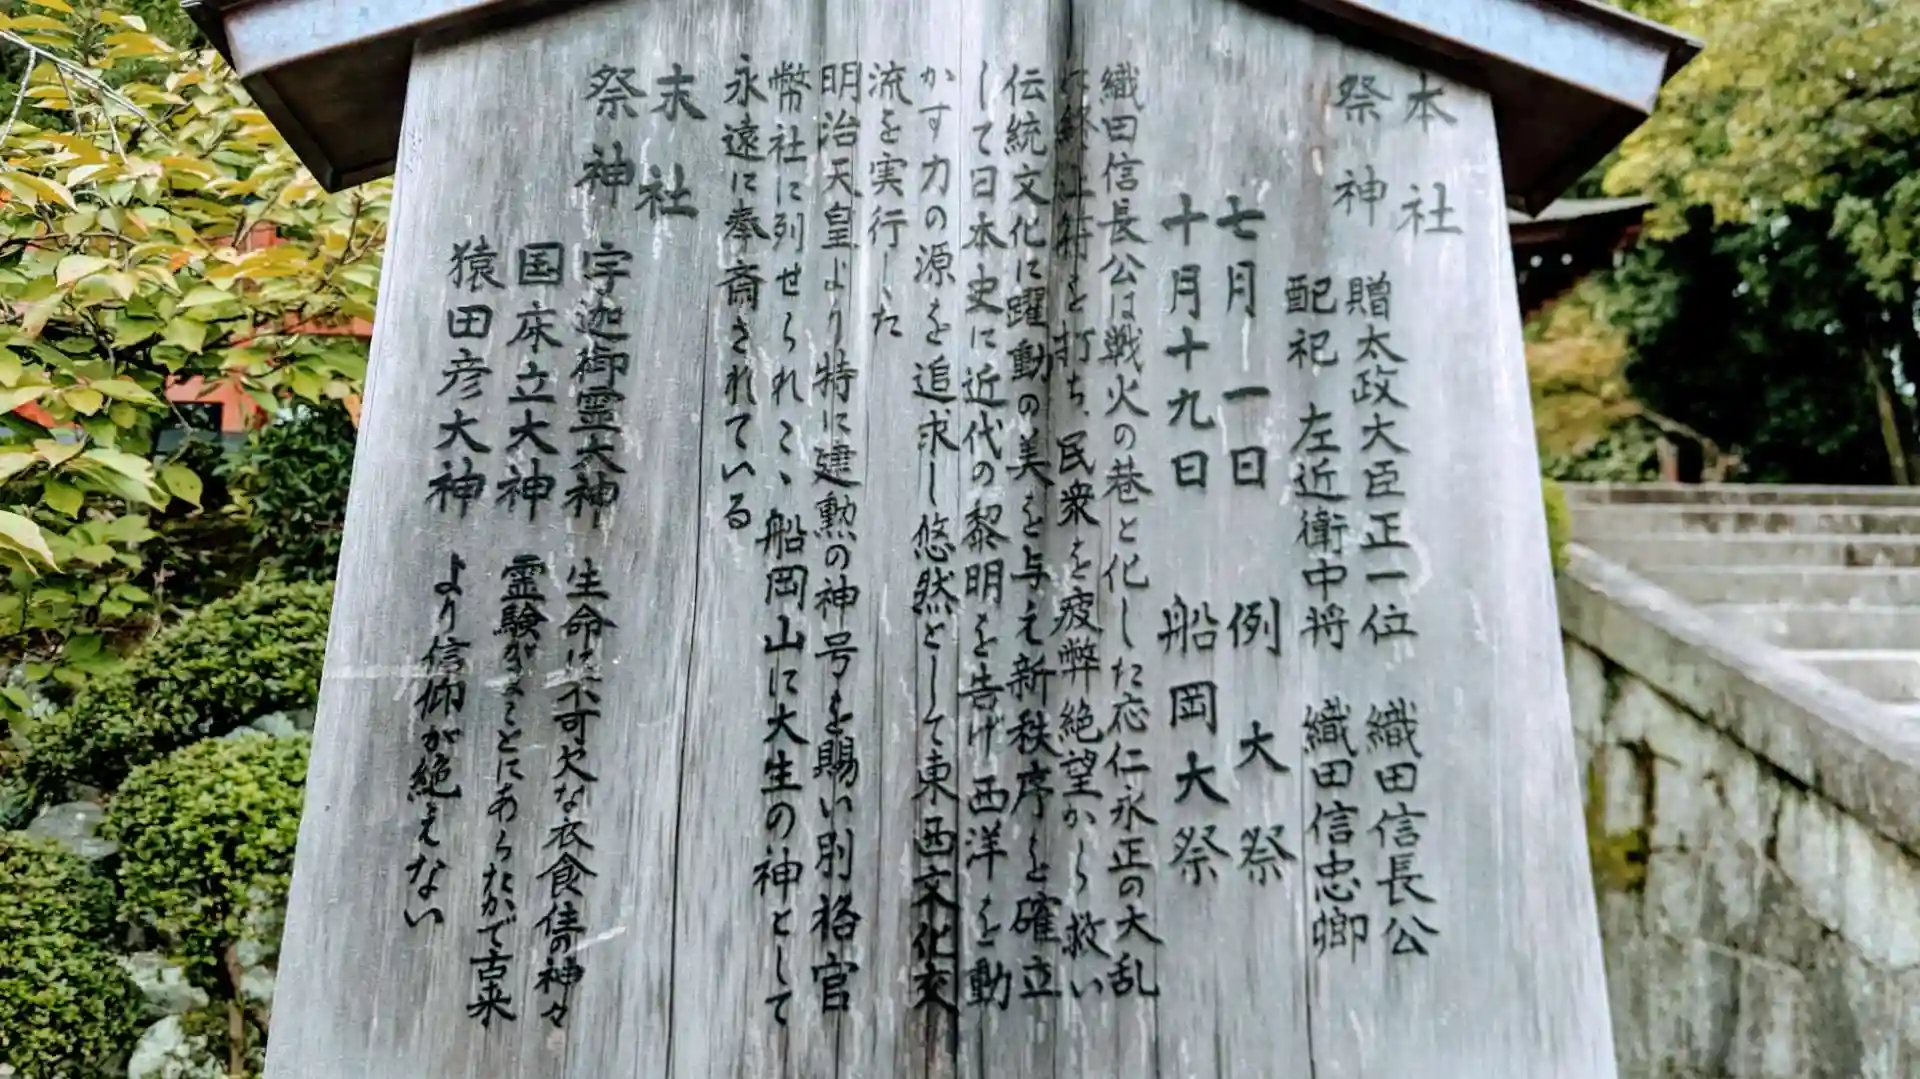 本社
祭神 贈太政大臣正一位 織田信長公
配祀 左近衛中将 織田信忠卿
七月一日 例大祭
十月十九日 船岡大祭
織田信長公は戦火の巷と化した応仁永正の大乱
に終止符を打ち、民衆を疲弊絶望から救い
伝統文化に躍動の美を与え新秩序を確立
して日本史に近代の黎明を告げ西洋を動
かす力の源を追求し悠然として東西文化交
流を実行した
明治天皇より特に建勲の神号を賜い別格官
幣社に列せられここ船岡山に大生の神として
永遠に奉斎されている
末社
祭神 宇迦御霊大神 生命に不可欠な衣食住の神々
国床立大神 霊験がまことにあらたかで古来
猿田彦大神 より信仰が絶えない